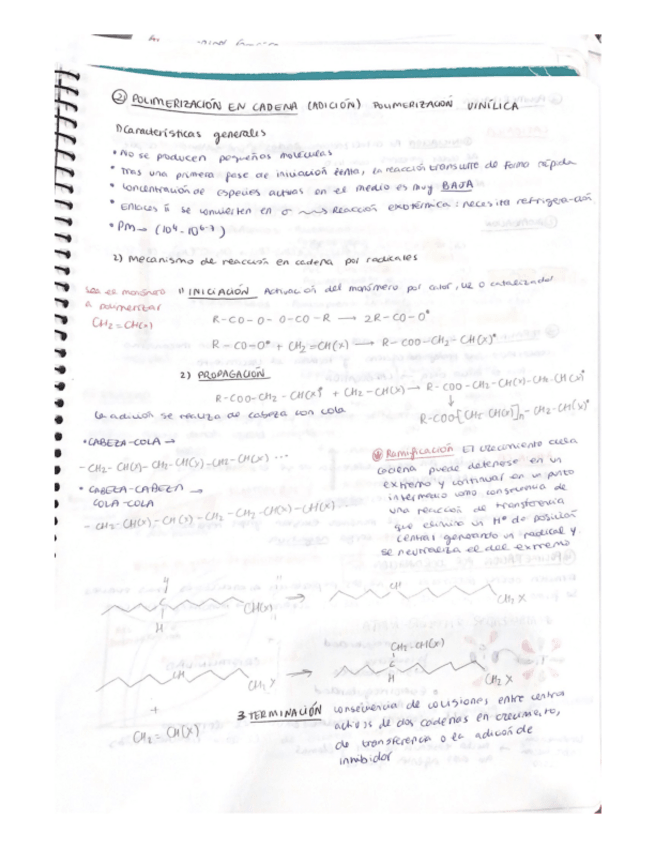 ② POLIMERIZACIÓN EN CADENA (ADICIÓN) POLIMERIZACIÓN VINÍLICA
1) Características generales
• No se producen pequeñas moléculas
• Tras una primera fase de iniciación lenta, la reacción transcurre de forma rápida
• Concentración de especies activas en el medio es muy BAJA
• Enlaces π se convierten en σ ⟿ Reacción exotérmica: necesita refrigeración
• PM → (10⁴-10⁶⁻⁷)
2) Mecanismo de reacción en cadena por radicales
Sea el monómero
a polimerizar
CH2=CH(X)
1) INICIACIÓN Activación del monómero por calor, UV o catalizador
R-CO-O-O-CO-R → 2R-CO-O*
R-CO-O* + CH2=CH(X) → R-COO-CH2-CH(X)*
2) PROPAGACIÓN
R-COO-CH2-CH(X)* + CH2-CH(X) → R-COO-CH2-CH(X)-CH2-CH(X)*
↓
R-COO[CH2 CH(X)]n-CH2-CH(X)*
La adición se realiza de cabeza con cola
• CABEZA-COLA →
-CH2-CH(X)-CH2-CH(X)-CH2-CH(X) ...
• CABEZA-CABEZA →
COLA-COLA
-CH2-CH(X)-CH(X)-CH2-CH2-CH(X)-CH(X)...
Ramificación El crecimiento de la
cadena puede detenerse en un
extremo y continuar en un punto
intermedio como consecuencia de
una reacción de transferencia
que elimina un H* de posición
central generando un radical y
se neutraliza el del extremo
C
H
CH(X)
→
CH
CH2 X
CH
CH2 X
+
CH2=CH(X)
→
CH2-CH(X)
C
H
CH2 X
3. TERMINACIÓN consecuencia de colisiones entre centros
activos de dos cadenas en crecimiento,
de transferencia o la adición de
inhibidor